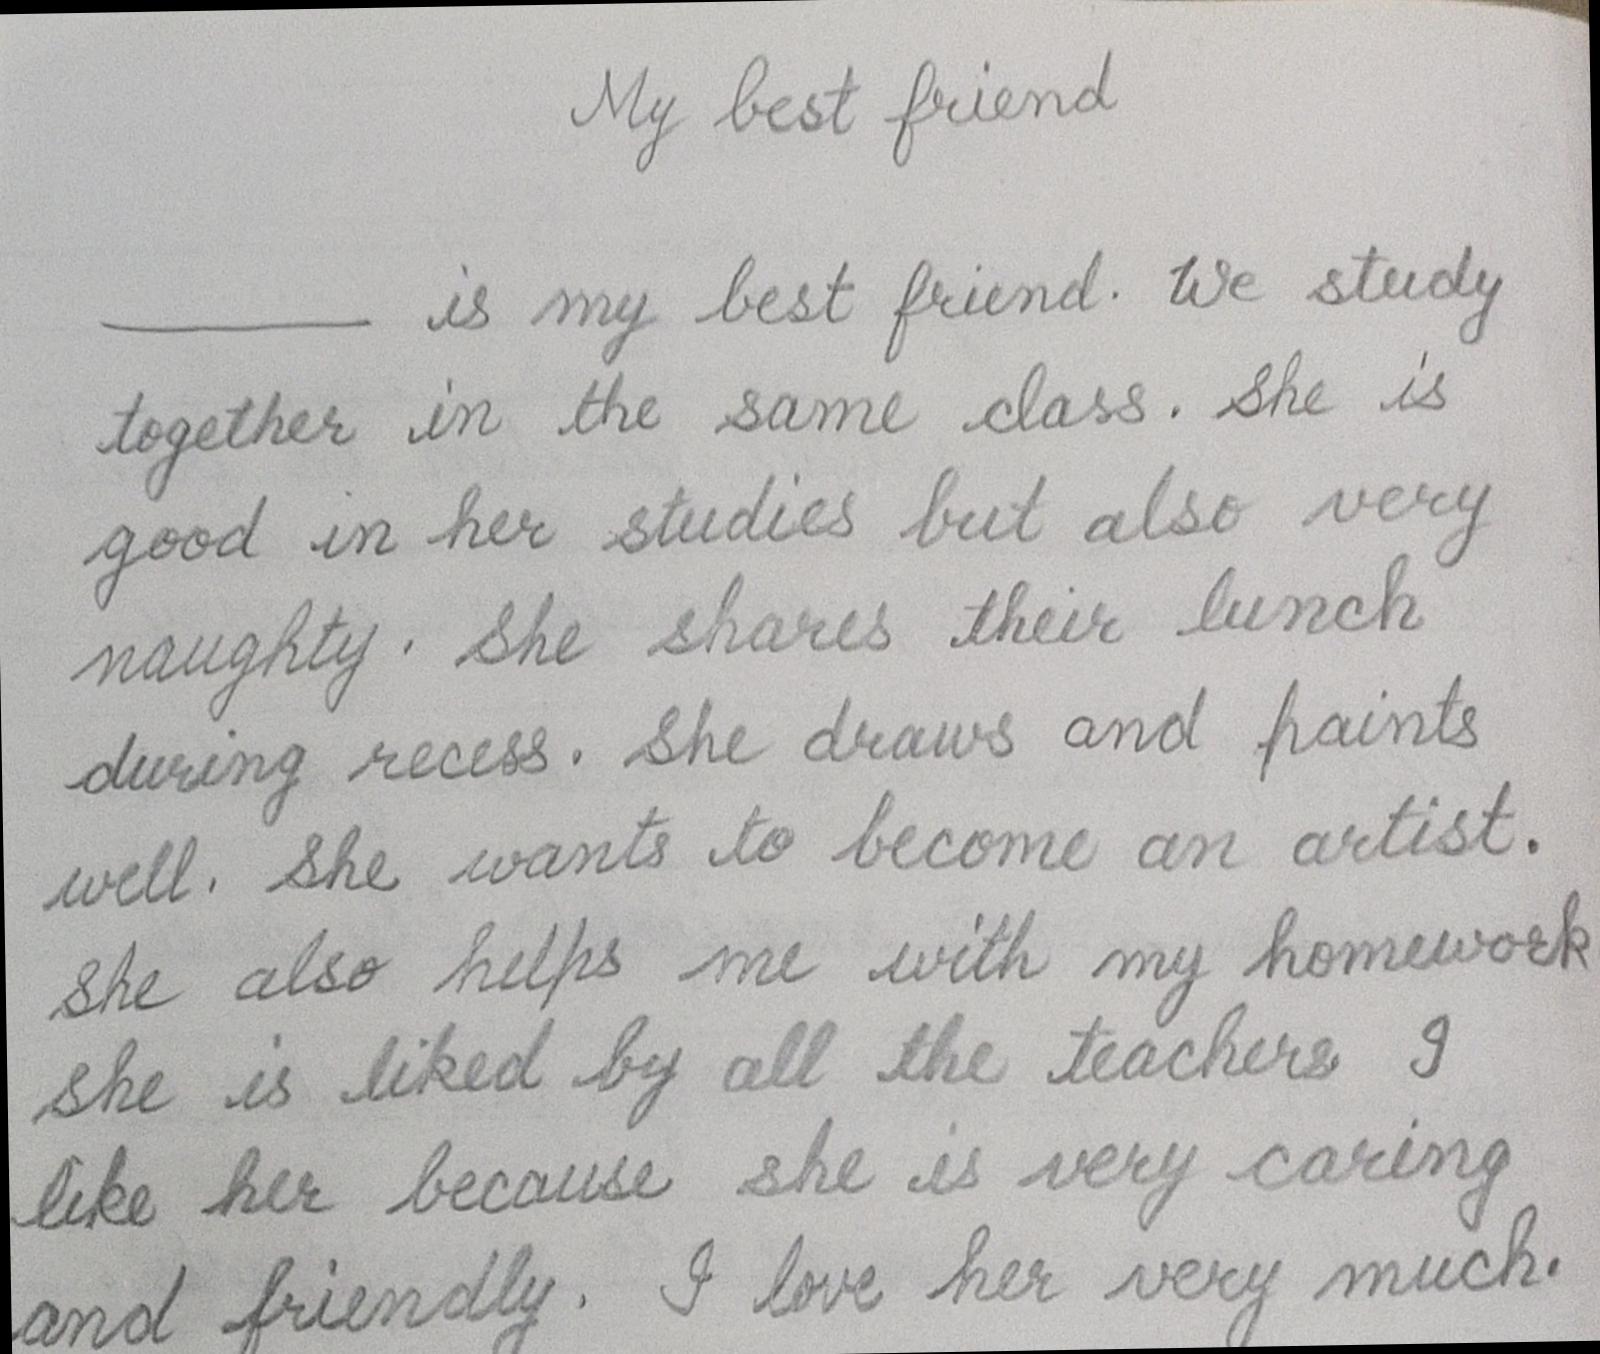 My best friend
________ is my best friend. We study
together in the same class. She is
good in her studies but also very
naughty. She shares their lunch
during recess. She draws and paints
well. She wants to become an artist.
She also helps me with my homework
She is liked by all the teachers I
like her because she is very caring
and friendly. I love her very much.